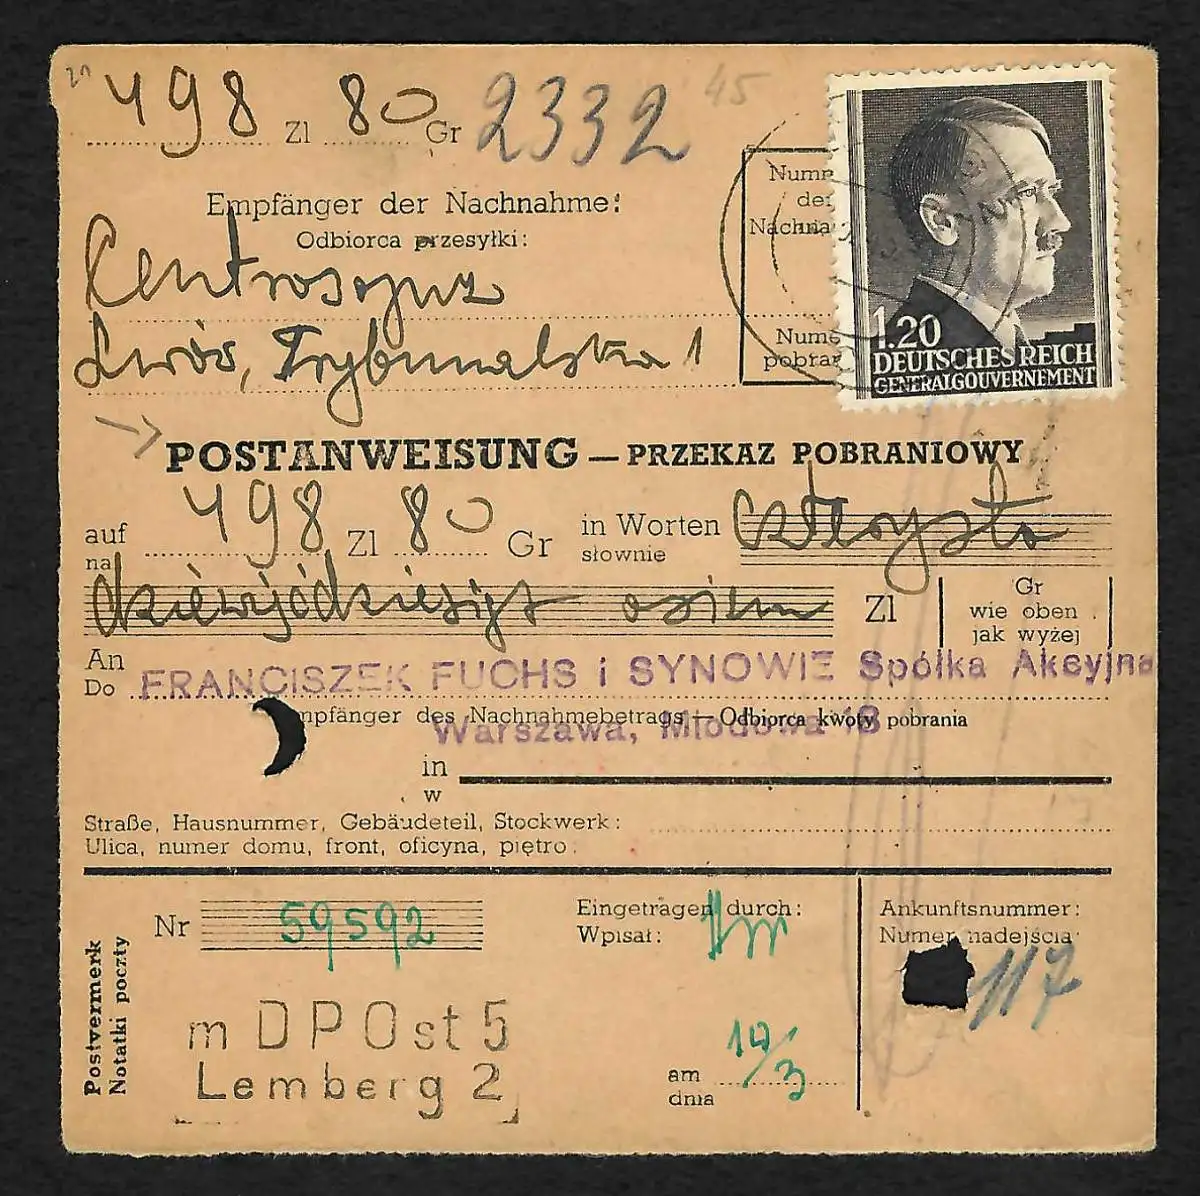 498 Zl 80 Gr 2332 45
Empfänger der Nachnahme:
Odbiorca przesyłki:
Centrosojuz
Lwów, Trybunalska 1
Numm
der
Nachna
Nume
pobrar
1.20
DEUTSCHES REICH
GENERALGOUVERNEMENT
POSTANWEISUNG — PRZEKAZ POBRANIOWY
auf 498 Zl 80 Gr in Worten czterysta
na słownie
dziewięćdziesiąt osiem Zl
Gr
wie oben
jak wyżej
An
Do FRANCISZEK FUCHS i SYNOWIE Spółka Akcyjna
mpfänger des Nachnahmebetrags — Odbiorca kwoty pobrania
Warszawa, Miodowa 18
in
w
Straße, Hausnummer, Gebäudeteil, Stockwerk:
Ulica, numer domu, front, oficyna, piętro:
Postvermerk
Notatki poczty
Nr 59592
Eingetragen durch:
Wpisał:
Ankunftsnummer:
Numer nadejścia:
117
m DPOst 5
Lemberg 2
am 19/3
dnia